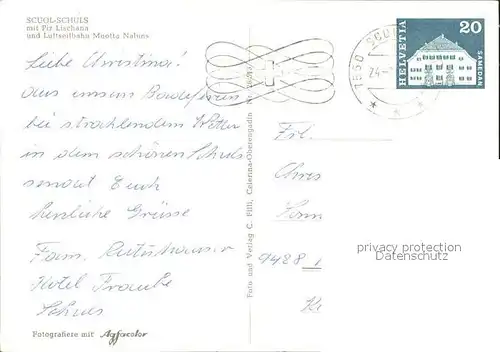 SCUOL-SCHULS
mit Piz Lischana
und Luftseilbahn Muotta Naluns
Liebe Christina!
Aus unsern Badeferien
bei strahlendem Wetter
in dem schönen Schuls
sendet Euch
herzliche Grüsse
Fam. Rutishauser
Hotel
Schuls
Fotografiere mit Agfacolor
Foto und Verlag C. Filli, Celerina-Oberengadin
1550 SCU
24
HELVETIA
20
SAMEDAN
Frl.
Chris
9428
privacy protection
Datenschutz